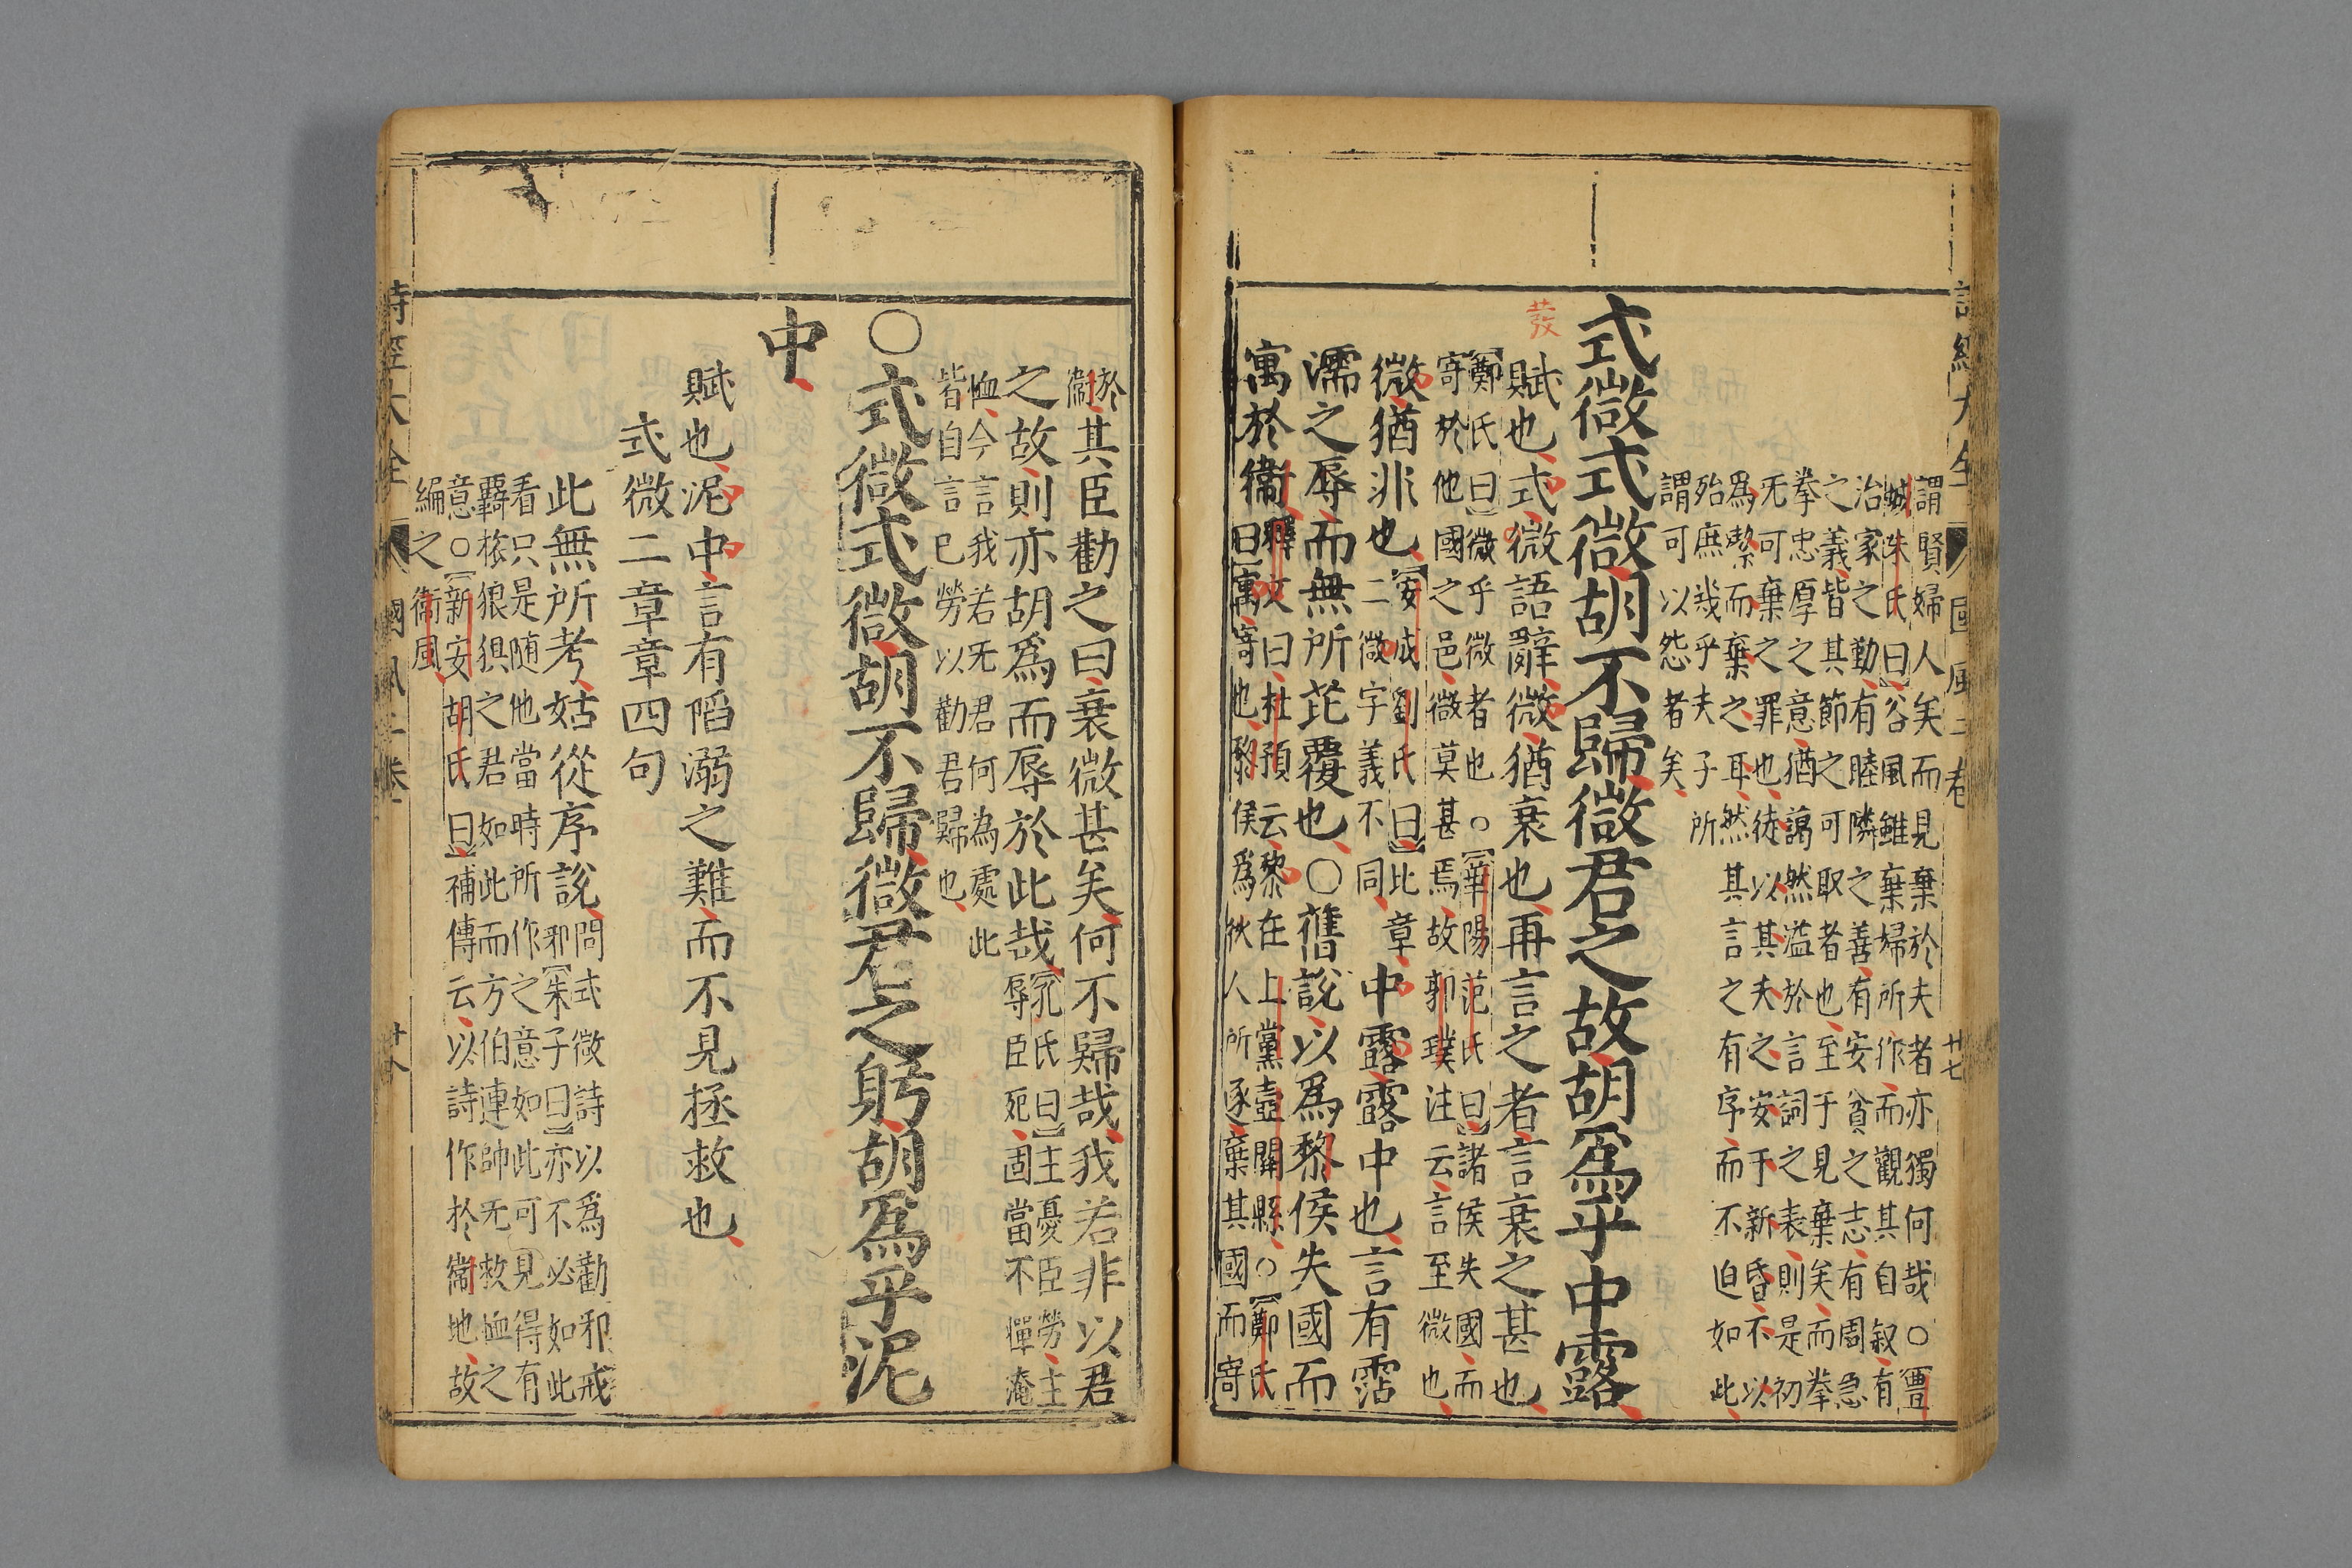 國風二卷 廿七
謂賢婦人矣而見棄於夫者亦獨何哉○豐
城朱氏曰谷風雖棄婦所作而觀其自叙有
治家之勤有睦隣之善有安貧之志有周急
之義皆其節之可取者也至于見棄矣而拳
拳忠厚之意猶藹然溢於言詞之表則是初
旡可棄之罪也徒以其夫之安于新昏不以
為㓗而棄之耳然其言之有序而不迫如此
殆庶㡬乎夫子所
謂可以怨者矣
式微式微胡不歸微君之故胡爲乎中露
賦也式微語辭微猶衰也再言之者言衰之甚也
鄭氏曰微乎微者也○華陽范氏曰諸侯失國而
寄於他國之邑微莫甚焉故郭璞注云言至微也
微猶非也
安成劉氏曰比章
二微字義不同
中露露中也言有霑
濡之辱而無所芘覆也○舊說以爲黎侯失國而
寓於衛
釋文曰杜預云黎在上黨壺關縣○鄭氏
曰寓寄也黎侯爲狄人所逐棄其國而寄
於
衛
其臣勸之曰衰微甚矣何不歸哉我若非以君
之故則亦胡爲而辱於此哉
孔氏曰主憂臣勞主
辱臣死固當不憚淹
恤今言我若旡君何為處此
皆自言已勞以勸君歸也
○式微式微胡不歸微君之躬胡爲乎泥
中
賦也泥中言有䧟溺之難而不見拯救也
式微二章章四句
此無所考姑從序說
問式微詩以爲勸邪戒
邪朱子曰亦不必如此
看只是随他當時所作之意如此可見得有
覊旅狼狽之君如此而方伯連帥旡救恤之
意○新安胡氏曰補傳云以詩作於衛地故
編之衛風
詩經大全 國風二卷 廿八